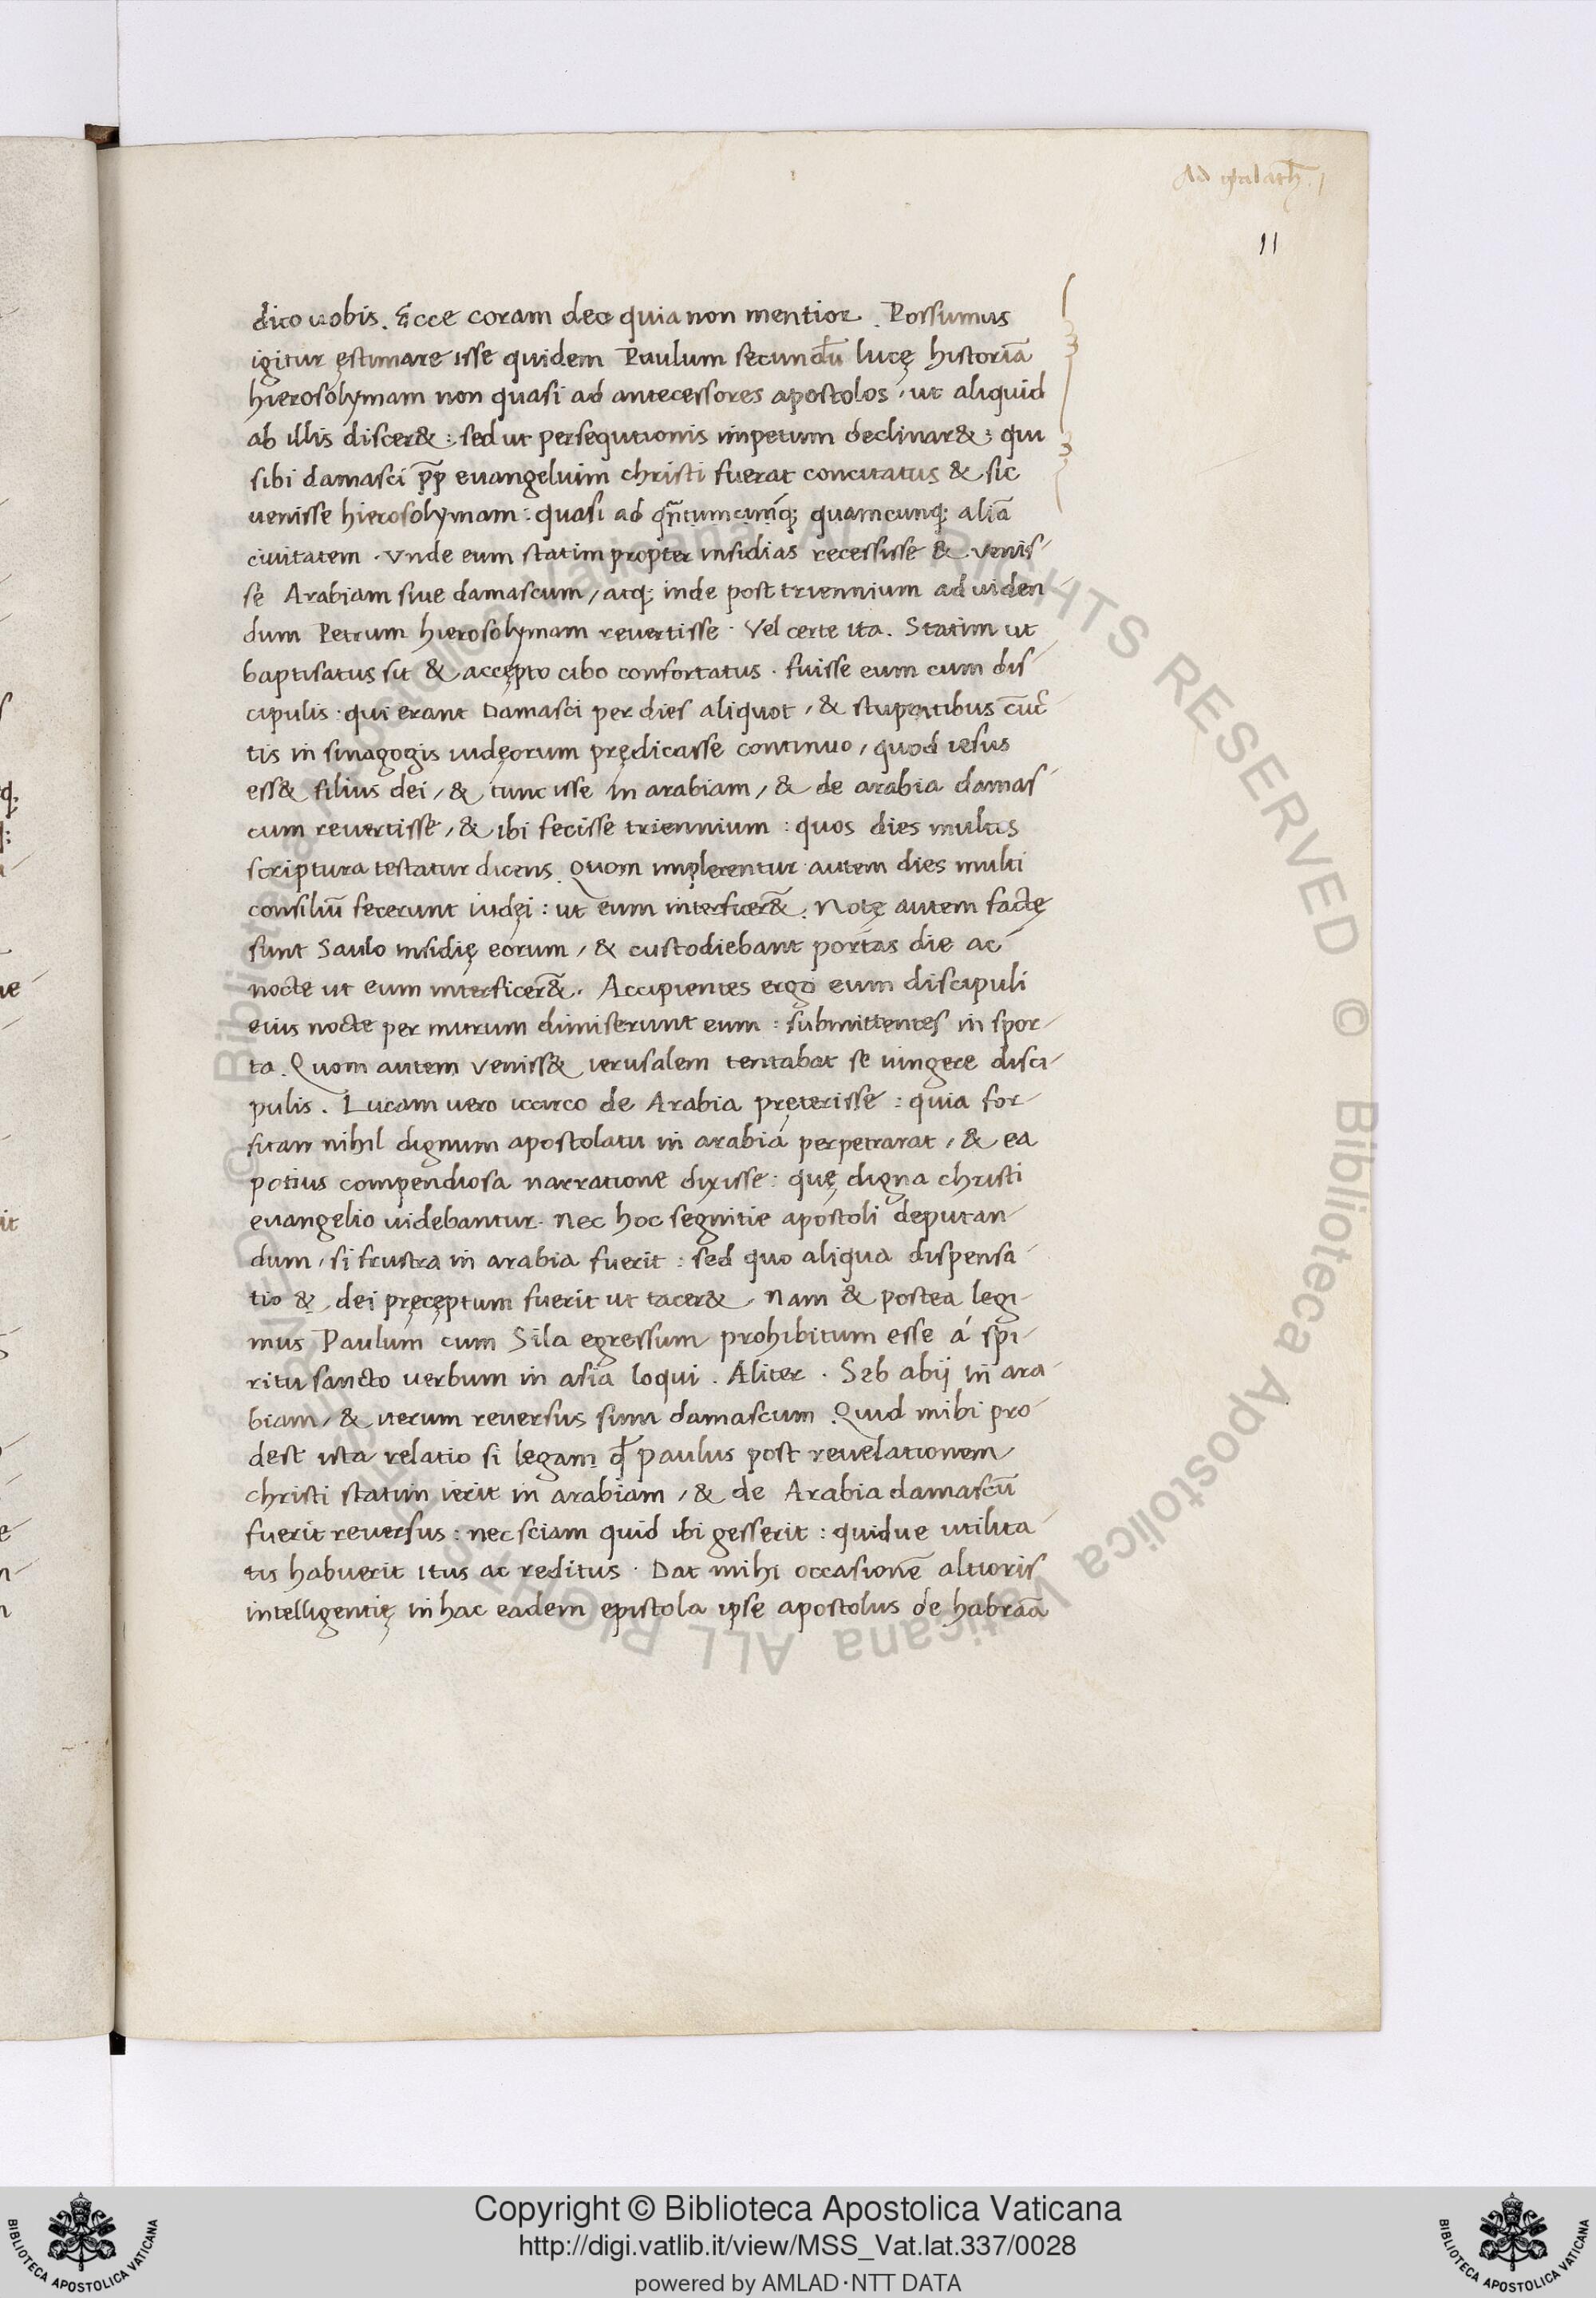 Ad galath. 1
11
dico uobis. Ecce coram deo quia non mentior. Possumus
igitur ęstimare isse quidem Paulum secundū lucę historiā
hierosolymam non quasi ad antecessores apostolos, ut aliquid
ab illis discer&: sed ut persequtionis impetum declinar&: qui
sibi damasci p̄p euangelium christi fuerat concitatus & sic
uenisse hierosolymam: quasi ad qñtumcunq; quamcunq; aliā
ciuitatem. Vnde eum statim propter insidias recessisse & venis-
se Arabiam siue damascum, atq; inde post triennium ad uiden-
dum Petrum hierosolymam revertisse. Vel certe ita. Statim ut
baptisatus sit & accępto cibo confortatus. fuisse eum cum dis-
cipulis: qui erant Damasci per dies aliquot, & stupentibus cūc-
tis in sinagogis iudęorum prędicasse continuo, quod iesus
ess& filius dei, & tunc isse in arabiam, & de arabia damas-
cum revertisse, & ibi fecisse triennium: quos dies multos
scriptura testatur dicens. Quom implerentur autem dies multi
consiliū fecerunt iudęi: ut eum interficer&̄. Notę autem factę
sunt Saulo insidię eorum, & custodiebant portas die ac
nocte ut eum interficer&̄. Accipientes ergo eum discipuli
eius nocte per murum dimiserunt eum: submittentes in spor-
ta. Quom autem veniss& ierusalem tentabat se iungere disci-
pulis. Lucam uero iccirco de Arabia pręterisse: quia for-
sitan nihil dignum apostolatu in arabia perpetrarat, & ea
potius compendiosa narratione dixisse: quę digna christi
euangelio uidebantur. Nec hoc segnitie apostoli deputan-
dum, si frustra in arabia fuerit: sed quo aliqua dispensa-
tio & dei pręcęptum fuerit ut tacer&. Nam & postea legi-
mus Paulum cum Sila egressum prohibitum esse á spi-
ritu sancto uerbum in asia loqui. Aliter. Seb abij in ara-
biam, & iterum reuersus sum damascum. Quid mihi pro-
dest ista relatio si legam ꝙ paulus post reuelationem
christi statim ierit in arabiam, & de Arabia damascū
fuerit reuersus: nec sciam quid ibi gesserit: quidue utilita-
tis habuerit itus ac reditus. Dat mihi occasionē altioris
intelligentię in hac eadem epistola ipse apostolus de habraā
© Biblioteca Apostolica Vaticana ALL RIGHTS RESERVED © Biblioteca Apostolica Vaticana ALL RIGHTS RESERVED
Copyright © Biblioteca Apostolica Vaticana
http://digi.vatlib.it/view/MSS_Vat.lat.337/0028
powered by AMLAD·NTT DATA
BIBLIOTECA APOSTOLICA VATICANA
BIBLIOTECA APOSTOLICA VATICANA